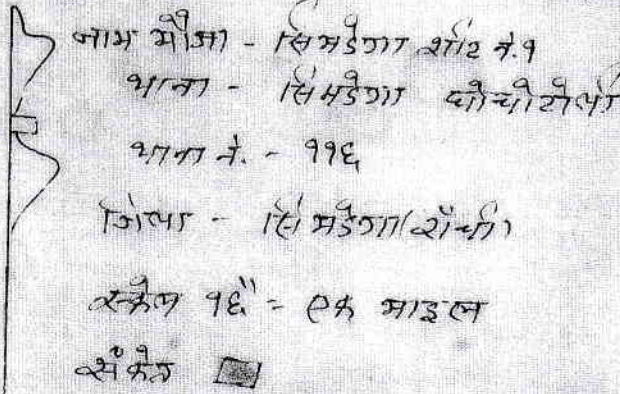 नाम मौजा - सिमडेगा शीट नं. १
थाना - सिमडेगा घोचोटोली
थाना नं. - ११६
जिला - सिमडेगा (राँची)
स्केल १६" = एक माइल
संकेत